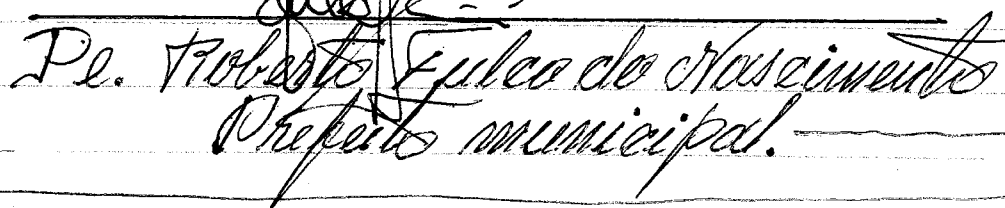 Pe. Roberto Fulco do Nascimento
Prefeito municipal.